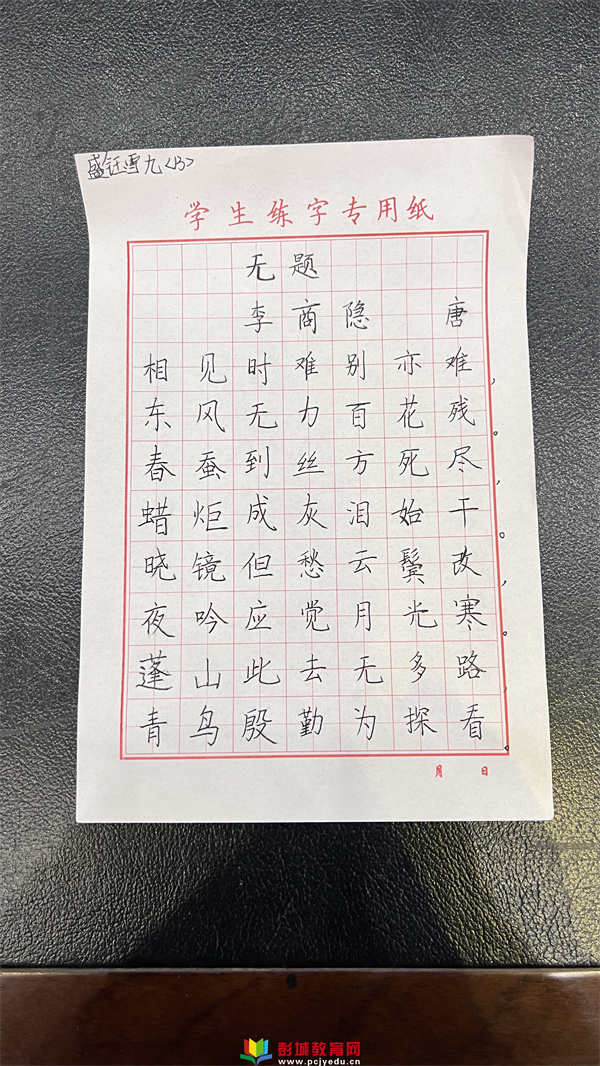 盛钰雪九<13>
学生练字专用纸
无题
李商隐 唐
相见时难别亦难，
东风无力百花残。
春蚕到丝方死尽，
蜡炬成灰泪始干。
晓镜但愁云鬓改，
夜吟应觉月光寒。
蓬山此去无多路，
青鸟殷勤为探看。
月 日
彭城教育网
www.pcjyedu.cn